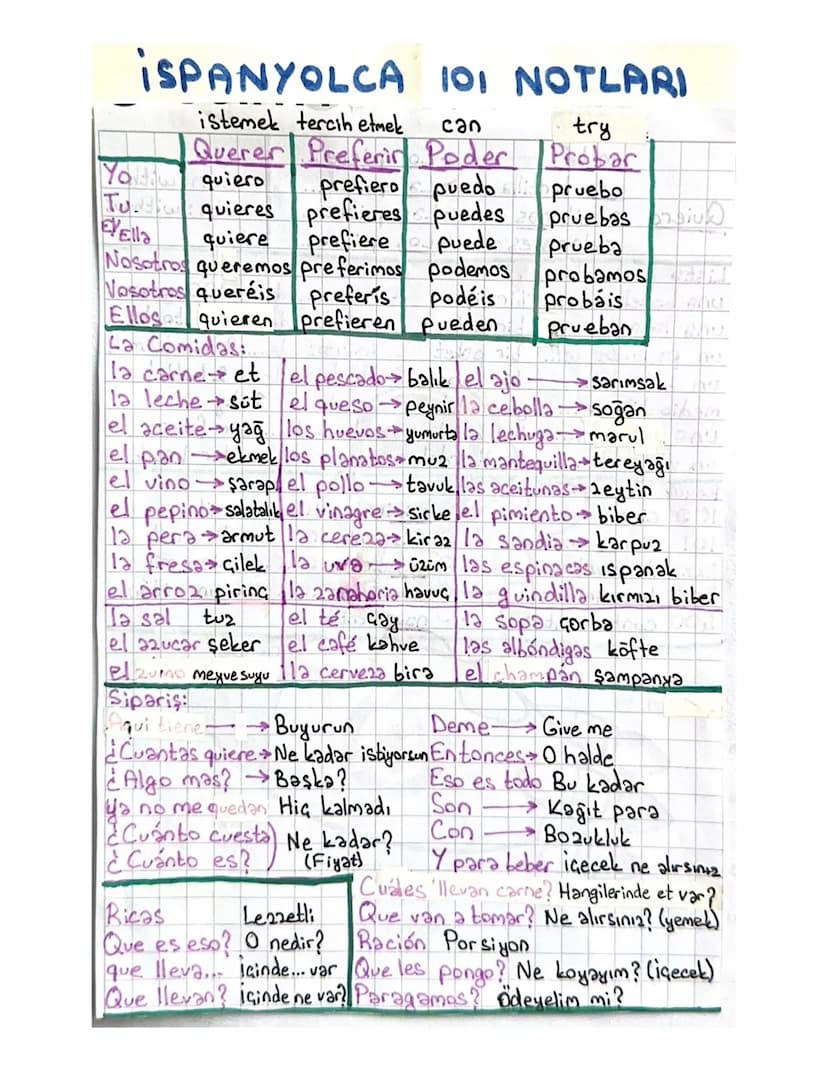 İSPANYOLCA 101 NOTLARI
istemek tercih etmek can try
Querer Preferir Poder Probar
Yo quiero prefiero puedo pruebo
Tu. quieres prefieres puedes pruebas
El/Ella quiere prefiere puede prueba
Nosotros queremos preferimos podemos probamos
Vosotros queréis preferís podéis probáis
Ellos quieren prefieren pueden prueban
La Comidas:
la carne → et el pescado → balık el ajo → sarımsak
la leche → süt el queso → peynir la cebolla → soğan
el aceite → yağ los huevos → yumurta la lechuga → marul
el pan → ekmek los planatos → muz la mantequilla → tereyağı
el vino → şarap el pollo → tavuk las aceitunas → zeytin
el pepino → salatalık el vinagre → sirke el pimiento → biber
la pera → armut la cereza → kiraz la sandia → karpuz
la fresa → çilek la uva → üzüm las espinacas ıspanak
el arroz pirinç la zanahoria havuç la guindilla kırmızı biber
la sal tuz el té çay la sopa çorba
el azucar şeker el café kahve las albóndigas köfte
el zumo meyve suyu la cerveza bira el champán şampanya
Sipariş:
Aqui tiene → Buyurun Deme → Give me
¿Cuantas quiere → Ne kadar istiyorsun Entonces → O halde
¿Algo mas? → Başka? Eso es todo Bu kadar
ya no me quedan Hiç kalmadı Son → Kağıt para
¿Cuánto cuesta Ne kadar? Con → Bozukluk
¿Cuánto es? ) (Fiyat) Y para beber içecek ne alırsınız
Cuáles llevan carne? Hangilerinde et var?
Ricas Lezzetli Que van a tomar? Ne alırsınız? (yemek)
Que es eso? O nedir? Ración Porsiyon
que lleva... içinde... var Que les pongo? Ne koyayım? (içecek)
Que llevan? içinde ne var? Paragamos? Ödeyelim mi?